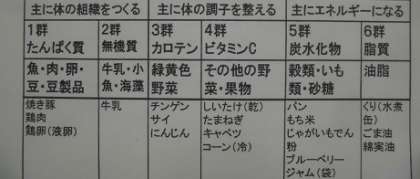 主に体の組織をつくる 主に体の調子を整える 主にエネルギーになる
1群 2群 3群 4群 5群 6群
たんぱく質 無機質 カロテン ビタミンC 炭水化物 脂質
魚・肉・卵・ 牛乳・小 緑黄色 その他の野 穀類・いも 油脂
豆・豆製品 魚・海藻 野菜 菜・果物 類・砂糖
焼き豚 牛乳 チンゲン しいたけ(乾) パン くり(水煮
鶏肉 サイ たまねぎ もち米 缶)
鶏卵(液卵) にんじん キャベツ じゃがいもでん ごま油
コーン(冷) 粉 綿実油
ブルーベリー
ジャム(袋)